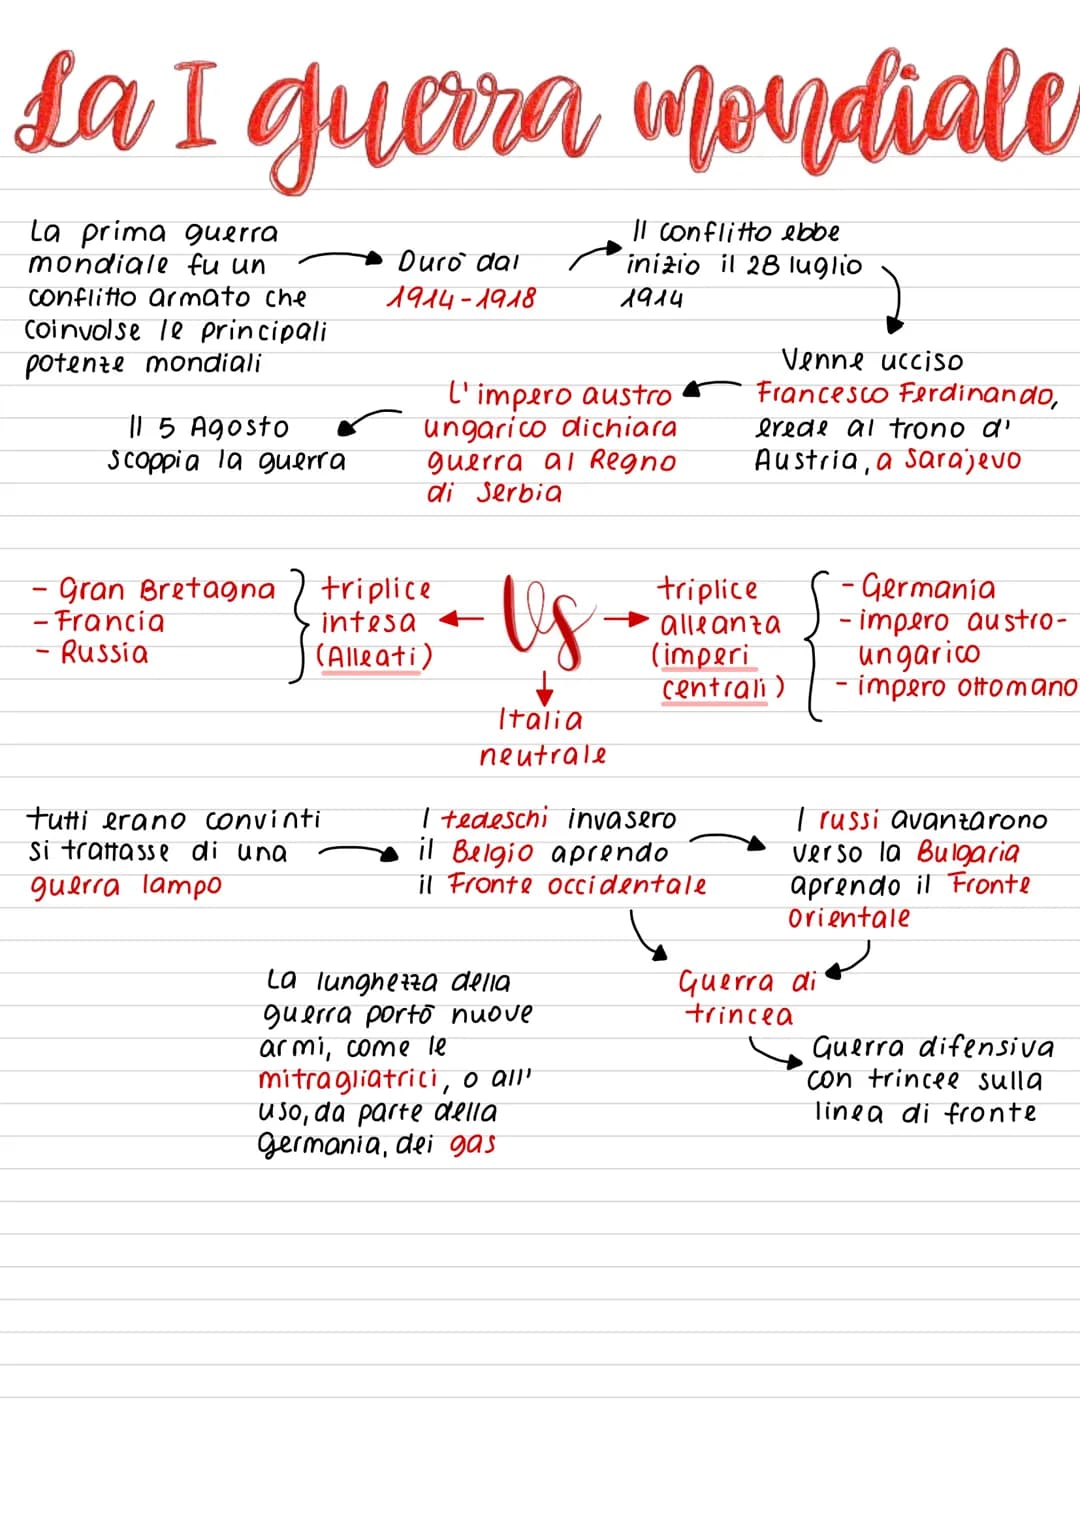 La I guerra mondiale
La prima guerra
mondiale fu un
conflitto armato che
coinvolse le principali
potenze mondiali
Durò dal
1914-1918
Il conflitto ebbe
inizio il 28 luglio
1914
Venne ucciso
Francesco Ferdinando,
erede al trono d'
Austria, a Sarajevo
L'impero austro
ungarico dichiara
guerra al Regno
di Serbia
Il 5 Agosto
scoppia la guerra
- Gran Bretagna
- Francia
- Russia
triplice
intesa
(Alleati)
Vs
triplice
alleanza
(imperi
centrali)
- Germania
- impero austro-
ungarico
- impero ottomano
Italia
neutrale
tutti erano convinti
si trattasse di una
guerra lampo
I tedeschi invasero
il Belgio aprendo
il Fronte occidentale
I russi avanzarono
verso la Bulgaria
aprendo il Fronte
Orientale
Guerra di
trincea
Guerra difensiva
con trincee sulla
linea di fronte
La lunghezza della
guerra portò nuove
armi, come le
mitragliatrici, o all'
uso, da parte della
Germania, dei gas